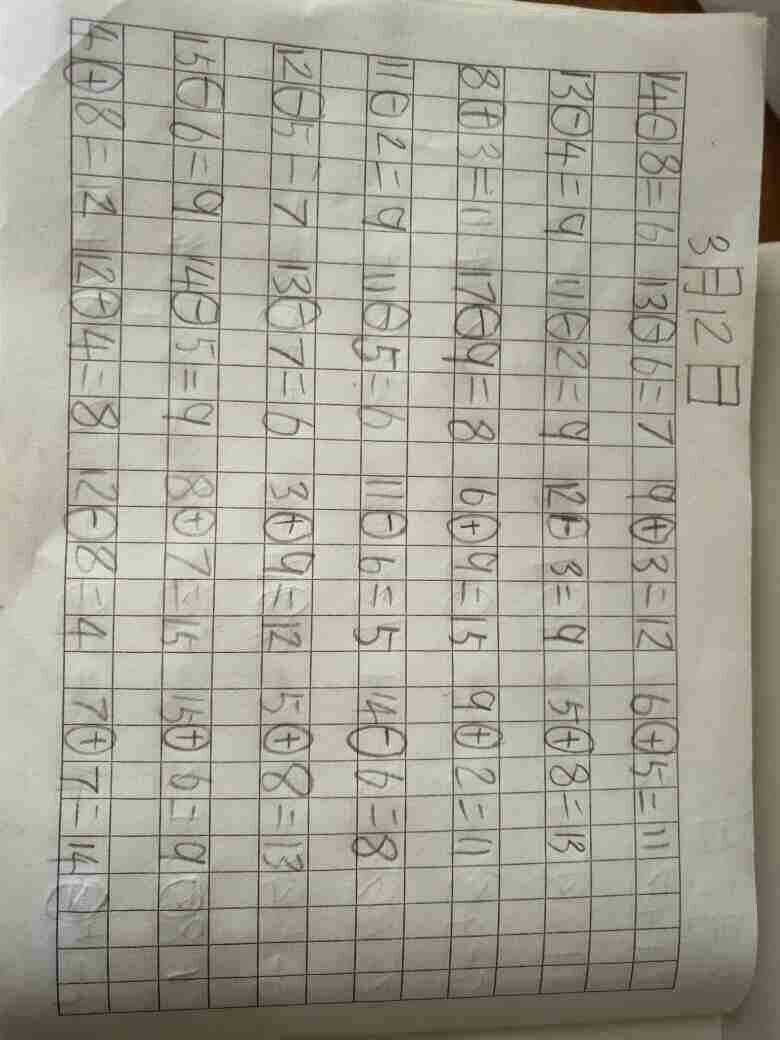 3月12日
14⊖8=6 13⊖6=7 9⊕3=12 6⊕5=11
13⊖4=9 11⊖2=9 12⊖3=9 5⊕8=13
8⊕3=11 17⊖9=8 6⊕9=15 9⊕2=11
11⊖2=9 11⊖5=6 11⊖6=5 14⊖6=8
12⊖5=7 13⊖7=6 3⊕9=12 5⊕8=13
15⊖6=9 14⊖5=9 8⊕7=15 15⊕6=9
4⊕8=12 12⊖4=8 12⊖8=4 7⊕7=14